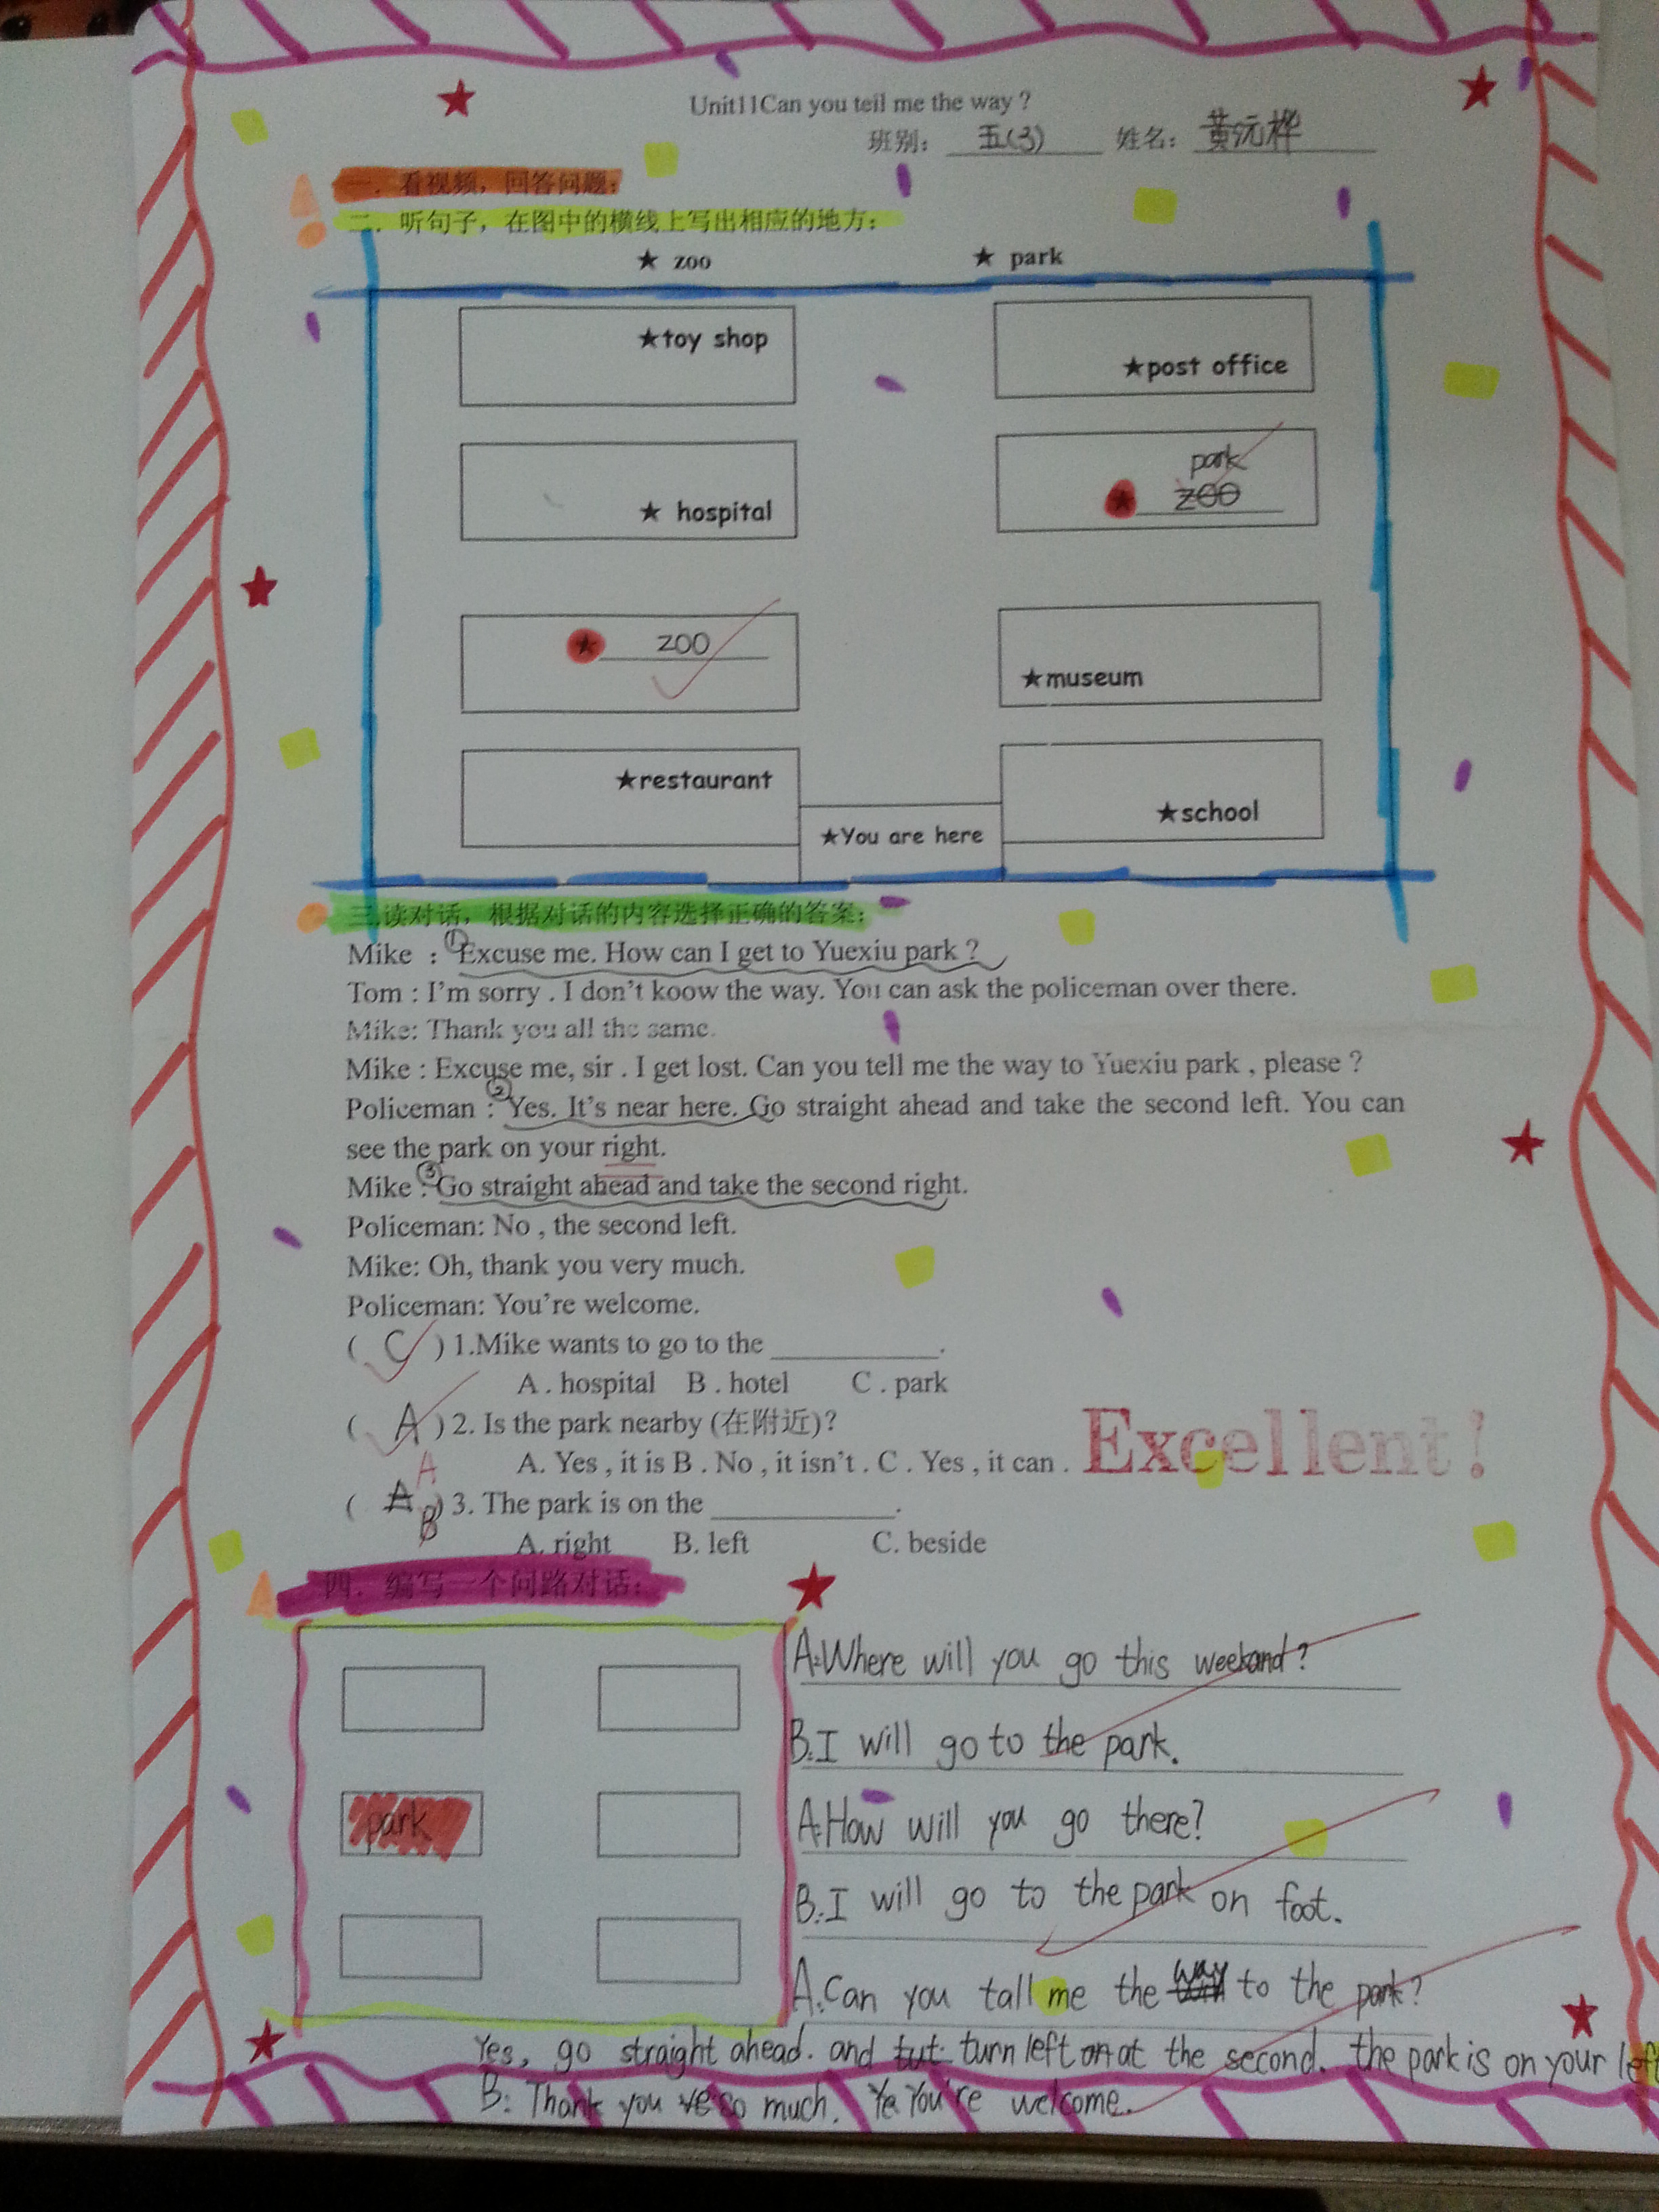 Unit11Can you tell me the way ?
班别: 五(3) 姓名: 黄沅桦
一. 看视频, 回答问题:
二. 听句子, 在图中的横线上写出相应的地方:
★ zoo ★ park
★toy shop
★post office
★ hospital
park
★ zoo
★ zoo
★museum
★restaurant
★school
★You are here
三.读对话, 根据对话的内容选择正确的答案:
Mike : ①Excuse me. How can I get to Yuexiu park ?
Tom : I'm sorry . I don't koow the way. You can ask the policeman over there.
Mike: Thank you all the same.
Mike : Excuse me, sir . I get lost. Can you tell me the way to Yuexiu park , please ?
Policeman : ②Yes. It's near here. Go straight ahead and take the second left. You can
see the park on your right.
Mike : ③Go straight ahead and take the second right.
Policeman: No , the second left.
Mike: Oh, thank you very much.
Policeman: You're welcome.
( C ) 1.Mike wants to go to the ___________.
A . hospital B . hotel C . park
( A ) 2. Is the park nearby (在附近)?
A. Yes , it is B . No , it isn't . C . Yes , it can .
Excellent!
A
( A ) 3. The park is on the ____________.
B
A. right B. left C. beside
四. 编写一个问路对话:
A:Where will you go this weekand?
B:I will go to the park.
park
A:How will you go there?
B:I will go to the park on foot.
A:Can you tall me the way to the park?
Yes, go straight ahead. and tut turn left on at the second. the park is on your left
B: Thank you ve so much. Ye You're welcome.